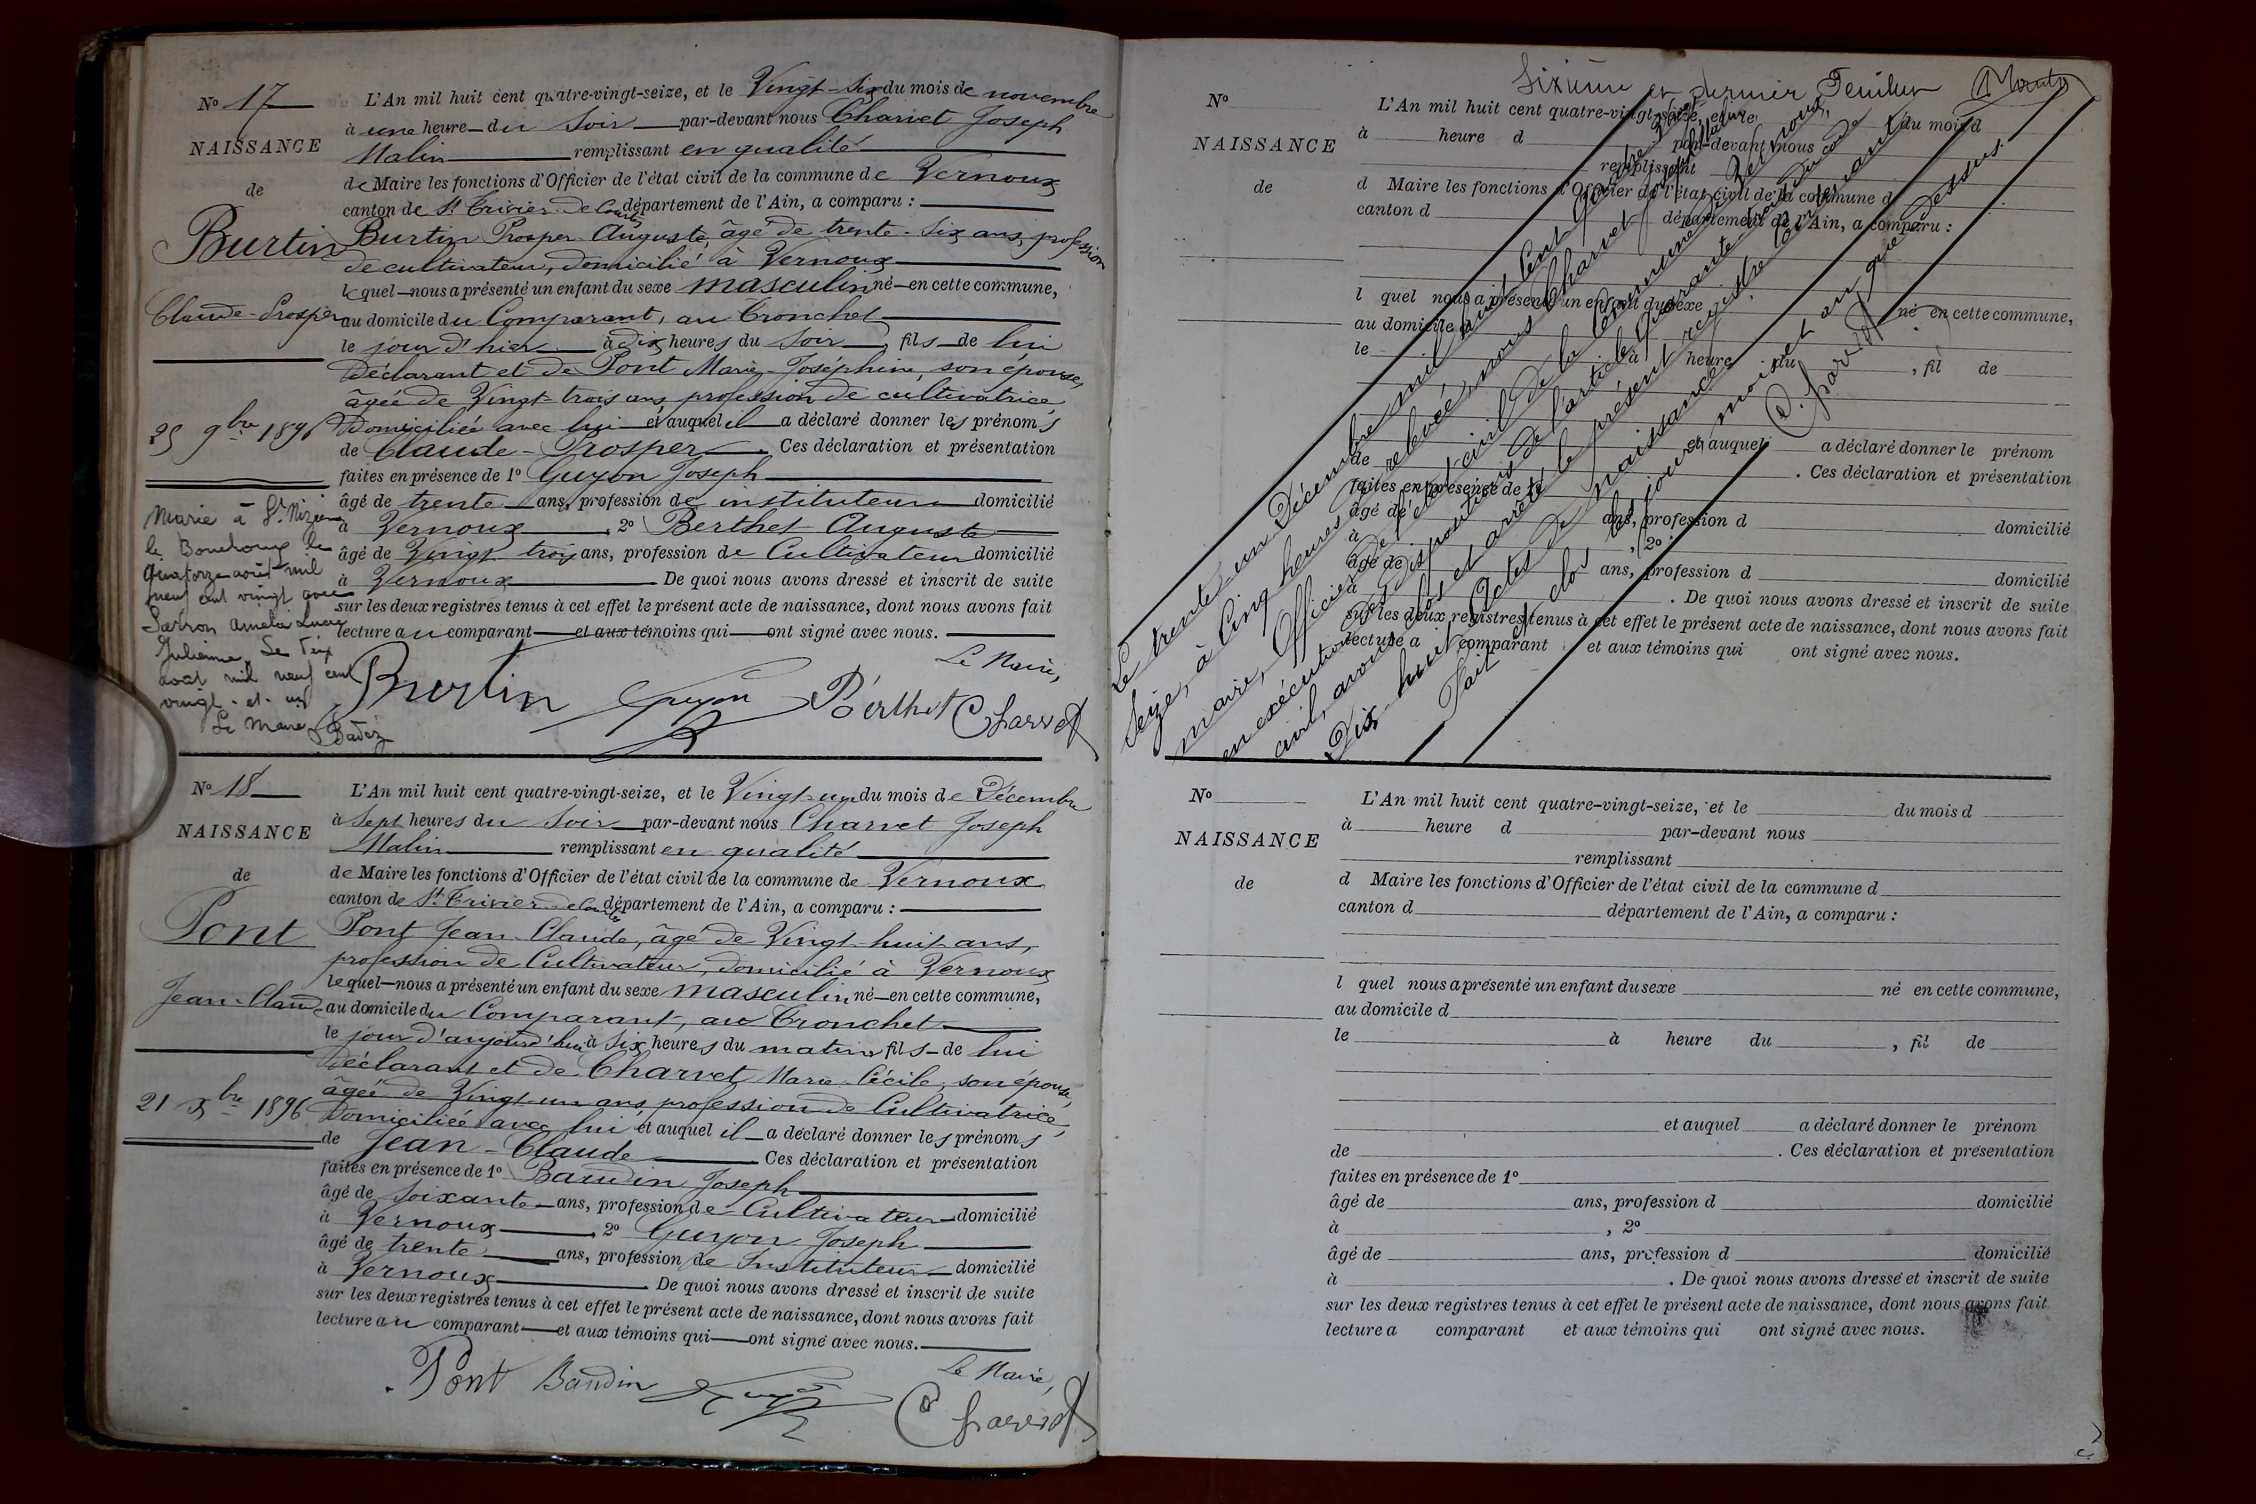 N° 17
NAISSANCE
de
Burtin
Claude-Prosper
25 9bre 1896
Marié à St Nizier
le Bouchoux le
quatorze août mil
neuf cent vingt
Sarron Amelia
Julienne. Le
août mil neuf cent
vingt-et-un
Le Maire
L'An mil huit cent quatre-vingt-seize, et le Vingt-Six du mois de novembre
à une heure du Soir par-devant nous Charvet Joseph
Malin remplissant en qualité
de Maire les fonctions d'Officier de l'état civil de la commune de Vernoux
canton de St Trivier-de-Courtes département de l'Ain, a comparu :
Burtin Prosper Auguste, âgé de trente-six ans, profession
de cultivateur, domicilié à Vernoux
lequel nous a présenté un enfant du sexe masculin né en cette commune,
au domicile du Comparant, au Tronchet
le jour d'hier à dix heures du Soir, fils de lui
Déclarant et de Pont Marie-Joséphine, son épouse,
âgée de Vingt-trois ans profession de cultivatrice,
Domiciliée avec lui et auquel il a déclaré donner les prénoms
de Claude-Prosper. Ces déclaration et présentation
faites en présence de 1° Guyon Joseph
âgé de trente ans, profession de instituteur domicilié
à Vernoux, 2° Berthet Auguste
âgé de Vingt trois ans, profession de Cultivateur domicilié
à Vernoux. De quoi nous avons dressé et inscrit de suite
sur les deux registres tenus à cet effet le présent acte de naissance, dont nous avons fait
lecture au comparant et aux témoins qui ont signé avec nous.
Le Maire,
Burtin Guyon Berthet Charvet
N° 18
NAISSANCE
de
Pont
Jean-Claude
21 Xbre 1896
L'An mil huit cent quatre-vingt-seize, et le Vingt-un du mois de Décembre
à Sept heures du Soir par-devant nous Charvet Joseph
Malin remplissant en qualité
de Maire les fonctions d'Officier de l'état civil de la commune de Vernoux
canton de St Trivier de Courtes département de l'Ain, a comparu :
Pont Jean-Claude, âgé de Vingt-huit ans,
profession de Cultivateur, domicilié à Vernoux
lequel nous a présenté un enfant du sexe masculin né en cette commune,
au domicile du Comparant, au Tronchet
le jour d'aujourd'hui à Six heures du matin fils de lui
Déclarant et de Charvet Marie-Cécile, son épouse,
âgée de Vingt-un ans profession de Cultivatrice,
Domiciliée avec lui et auquel il a déclaré donner les prénoms
de Jean-Claude Ces déclaration et présentation
faites en présence de 1° Baudin Joseph
âgé de Soixante ans, profession de Cultivateur domicilié
à Vernoux, 2° Guyon Joseph
âgé de trente ans, profession de Instituteur domicilié
à Vernoux. De quoi nous avons dressé et inscrit de suite
sur les deux registres tenus à cet effet le présent acte de naissance, dont nous avons fait
lecture au comparant et aux témoins qui ont signé avec nous.
Le Maire,
Pont Baudin Guyon Charvet
Sixième et dernier Feuillet
N°
NAISSANCE
de
L'An mil huit cent quatre-vingt-seize, et le du mois d
à heure d par-devant nous
remplissant
d Maire les fonctions d'Officier de l'état civil de la commune d
canton d département de l'Ain, a comparu :
l quel nous a présenté un enfant du sexe né en cette commune,
au domicile d
le à heure du , fil de
et auquel a déclaré donner le prénom
de . Ces déclaration et présentation
faites en présence de 1°
âgé de ans, profession d domicilié
à , 2°
âgé de ans, profession d domicilié
à . De quoi nous avons dressé et inscrit de suite
sur les deux registres tenus à cet effet le présent acte de naissance, dont nous avons fait
lecture a comparant et aux témoins qui ont signé avec nous.
Le trente-un Décembre mil huit Cent quatre vingt
Seize, à Cinq heures relevée, nous Charvet Joseph Malin
maire, Officier de l'état civil de la Commune de Vernoux,
en exécution des dispositions de l'article quarante trois du code
civil, avons clos et arrêté le présent registre contenant
Dix-huit Actes de naissance
Fait et clos les jour, mois et an que dessus.
Charvet
N°
NAISSANCE
de
L'An mil huit cent quatre-vingt-seize, et le du mois d
à heure d par-devant nous
remplissant
d Maire les fonctions d'Officier de l'état civil de la commune d
canton d département de l'Ain, a comparu :
l quel nous a présenté un enfant du sexe né en cette commune,
au domicile d
le à heure du , fil de
et auquel a déclaré donner le prénom
de . Ces déclaration et présentation
faites en présence de 1°
âgé de ans, profession d domicilié
à , 2°
âgé de ans, profession d domicilié
à . De quoi nous avons dressé et inscrit de suite
sur les deux registres tenus à cet effet le présent acte de naissance, dont nous avons fait
lecture a comparant et aux témoins qui ont signé avec nous.